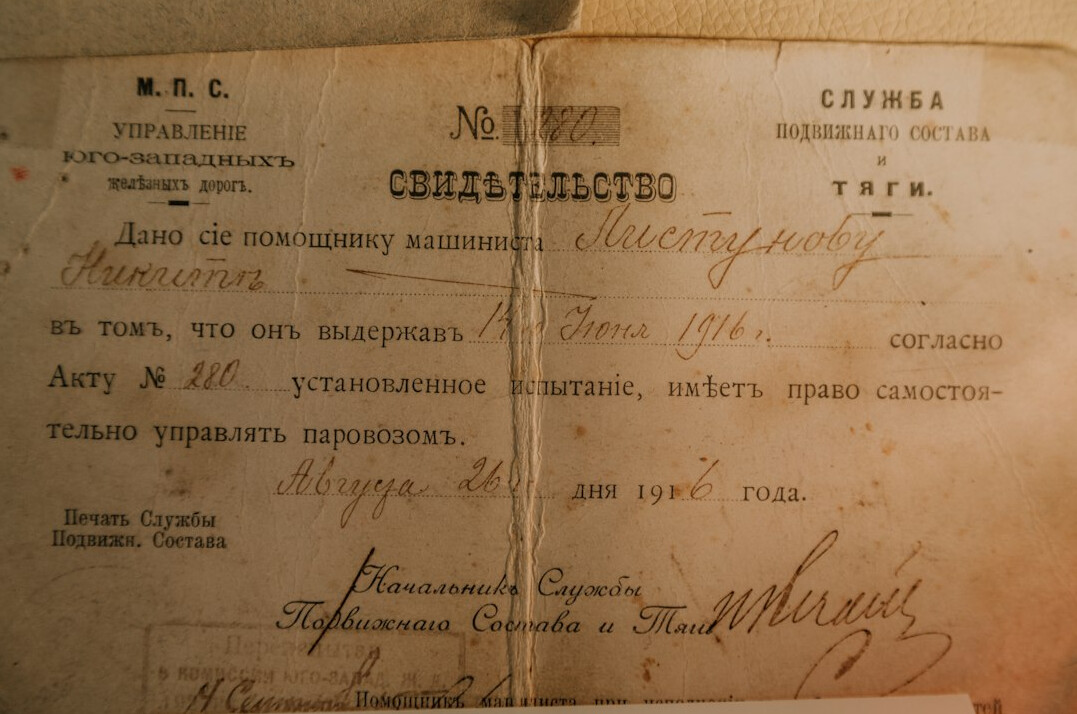 М. П. С.
УПРАВЛЕНІЕ
ЮГО-ЗАПАДНЫХЪ
желѣзныхъ дорогъ.
№ 280.
СВИДѢТЕЛЬСТВО
СЛУЖБА
ПОДВИЖНАГО СОСТАВА
и
ТЯГИ.
Дано сіе помощнику машиниста Листунову
Никитѣ
въ томъ, что онъ выдержавъ 14 Іюня 1916 г. согласно
Акту № 280 установленное испытаніе, имѣетъ право самостоя-
тельно управлять паровозомъ.
Августа 26 дня 1916 года.
Печать Службы
Подвижн. Состава
Начальникъ Службы
Подвижнаго Состава и Тяги
в комиссіи Юго-Запад. ж. д.
Помощникъ машиниста при